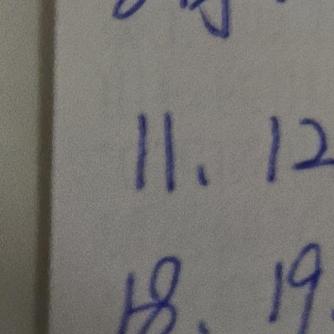 11、12
18、19